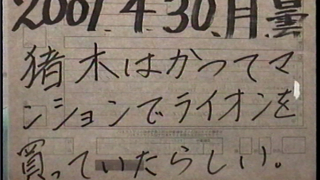 2007.4.30.月曇
猪木はかつてマ
ンションでライオンを
買っていたらしい。